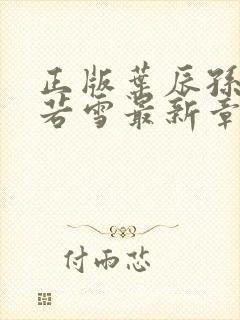 正版叶辰孙
若雪最新章
付雨芯